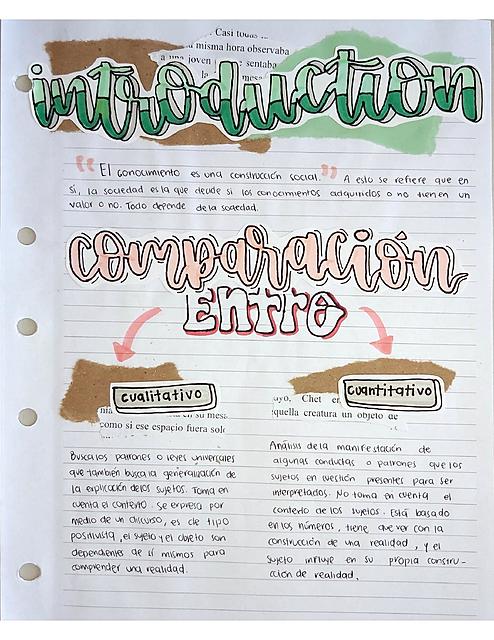 Casi todas
misma hora observaba
joven se sentaba
la mesa
introduction
"El conocimiento es una construcción social." A esto se refiere que en
si, la sociedad es la que decide si los conocimientos adquiridos o no tienen un
valor o no. Todo depende de la sociedad.
comparación
Entre
cualitativo
en su mesa
como si ese espacio fuera solo
Busca los patrones o leyes universales
que también busca la generalización de
la explicación de los sujetos. Toma en
cuenta el contexto. Se expresa por
medio de un discurso, es de tipo
positivista, el sujeto y el objeto son
dependientes de sí mismos para
comprender una realidad.
cuantitativo
uyo, Chet
quella creatura un objeto de
Análisis de la manifestación de
algunas conductas o patrones que los
sujetos en cuestión presentes para ser
interpretados. No toma en cuenta el
contexto de los sujetos. Está basado
en los números, tiene que ver con la
construcción de una realidad, y el
sujeto influye en su propia constru-
cción de realidad.